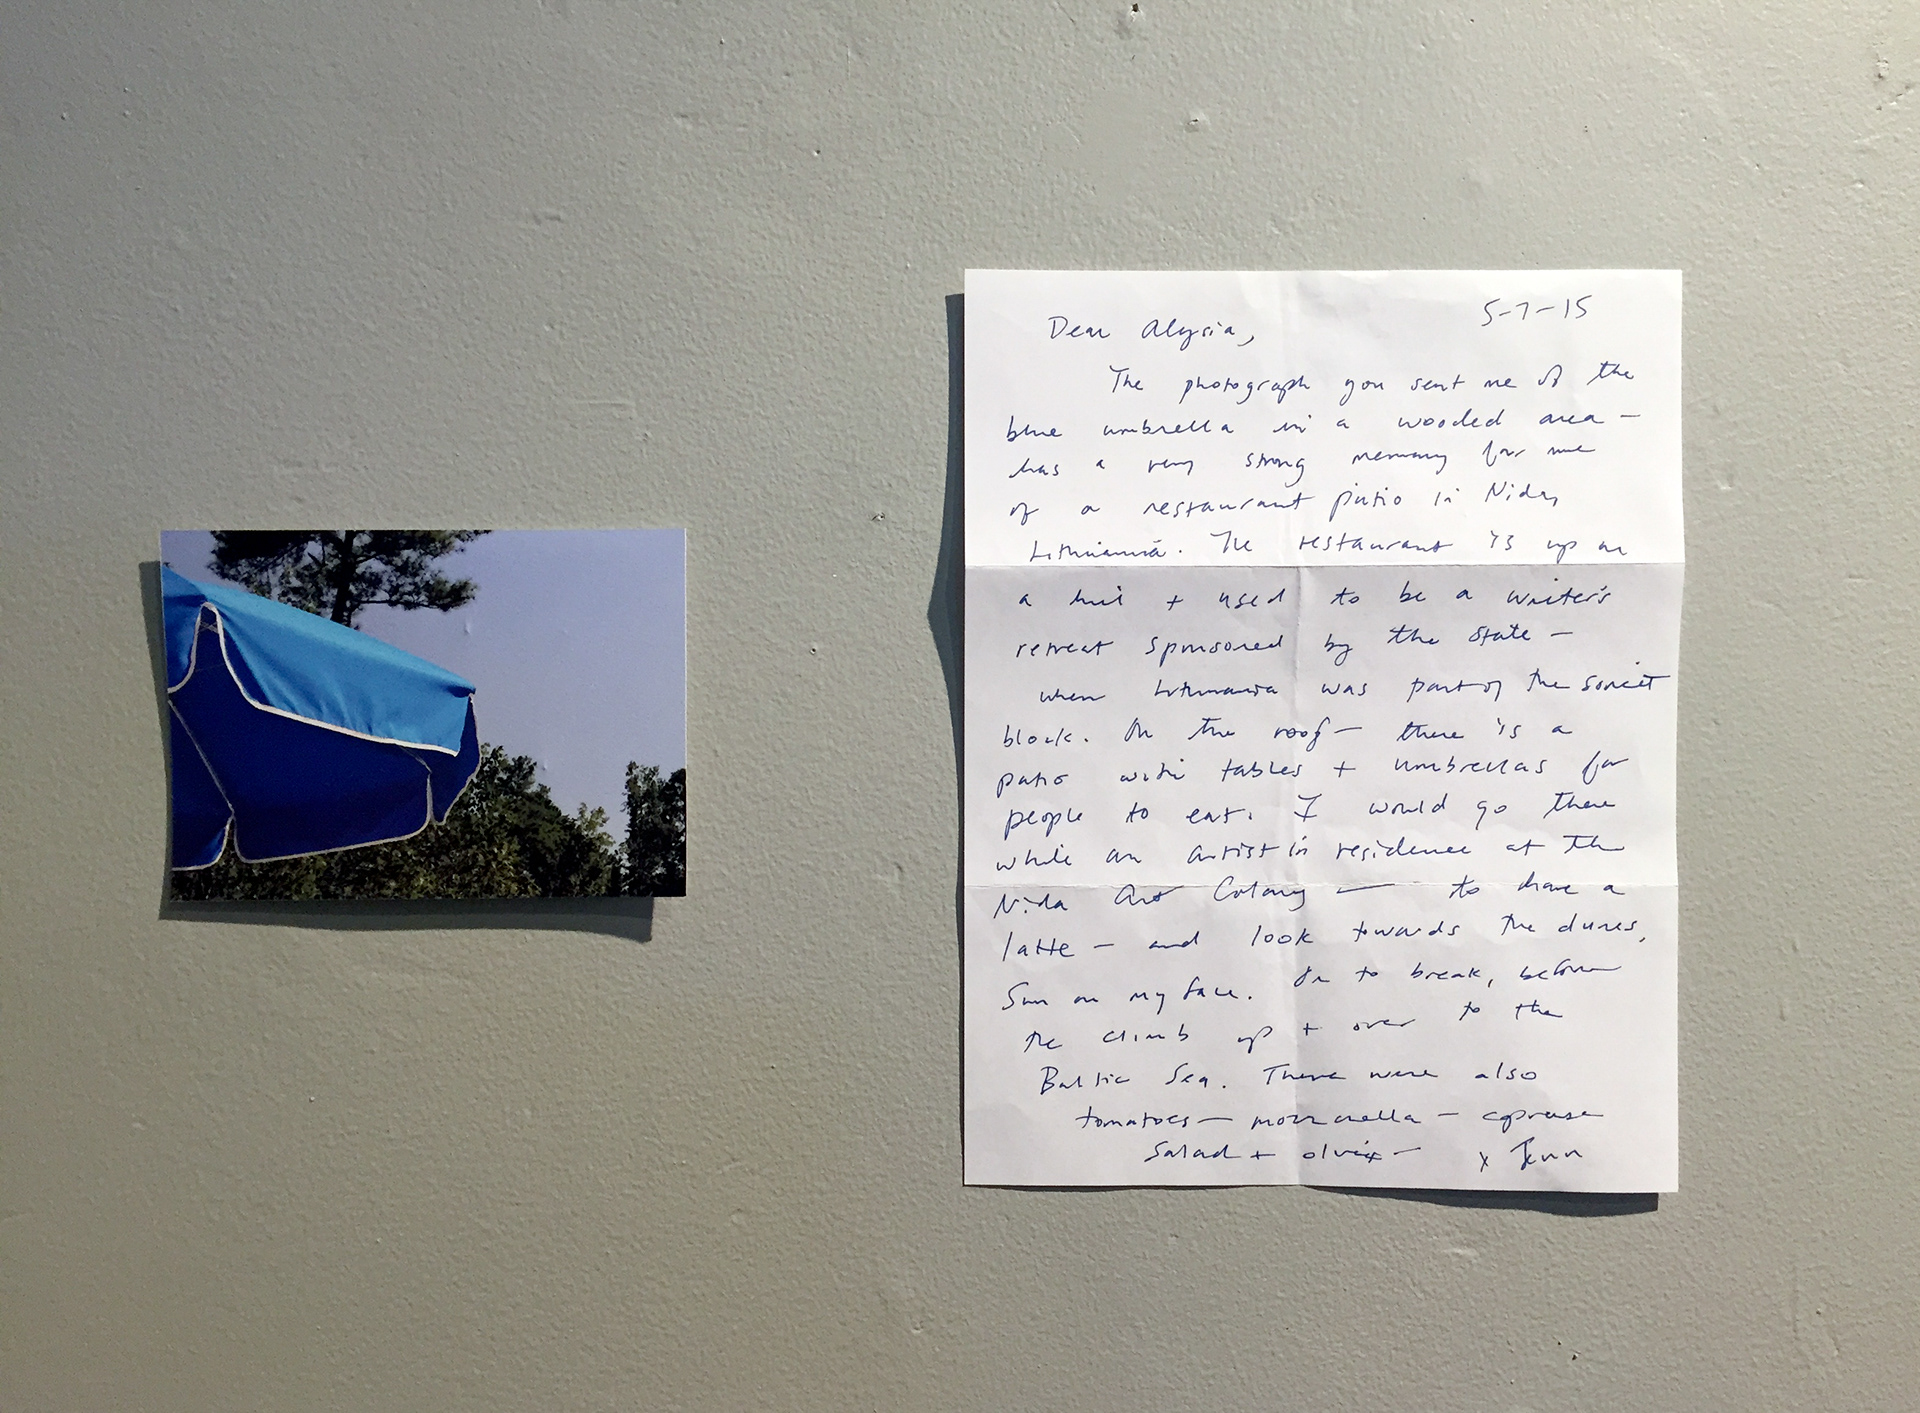 5-7-15
Dear Alysia,
The photograph you sent me of the
blue umbrella in a wooded area —
has a very strong memory for me
of a restaurant patio in Nida,
Lithuania. The restaurant is up on
a hill + used to be a writer's
retreat sponsored by the state —
when Lithuania was part of the soviet
block. On the roof — there is a
patio with tables + umbrellas for
people to eat. I would go there
while an artist in residence at the
Nida Art Colony — to have a
latte — and look towards the dunes,
Sun on my face. Or to break, before
the climb up + over to the
Baltic Sea. There were also
tomatoes — mozzarella — caprese
Salad + olives — x Jenn